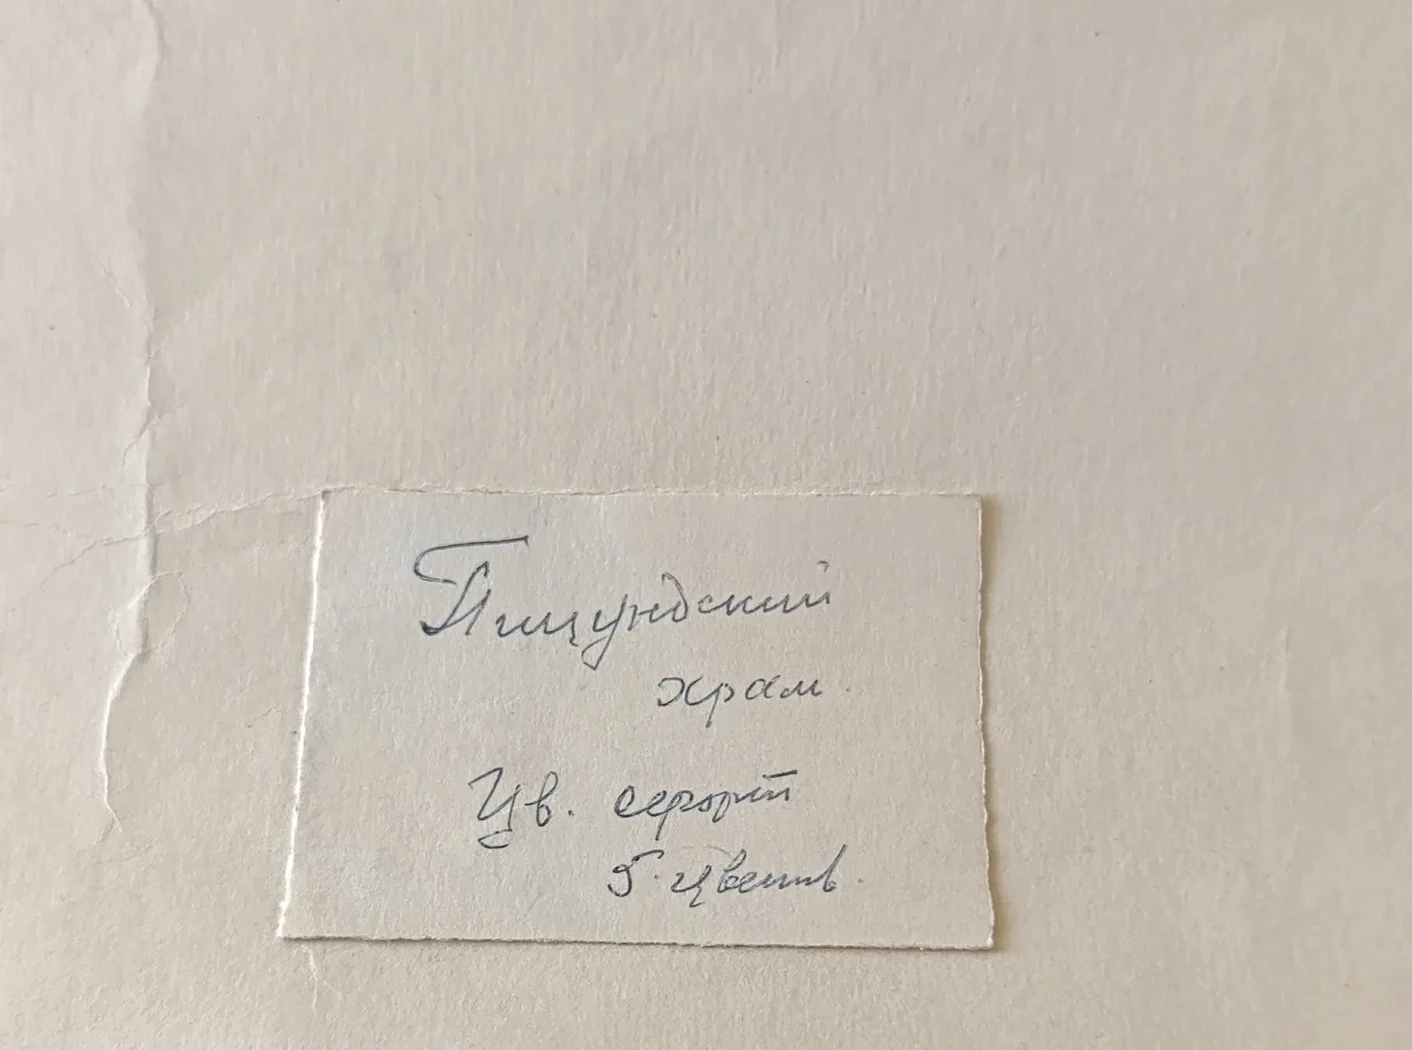 Пицундский
храм.
Цв. офорт
5 цветов.